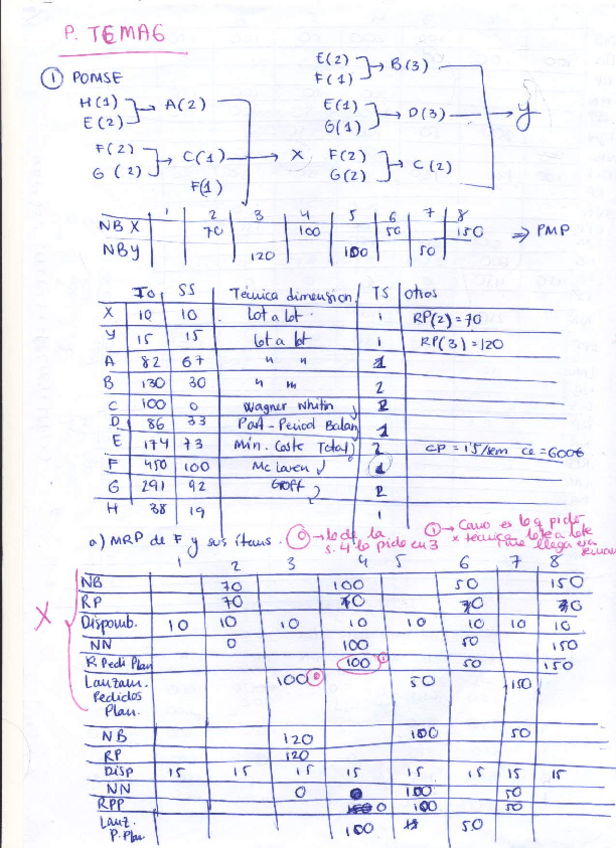 P. TEMA6
① POMSE
H(1)
E(2) → A(2)
F(2)
G(2) → C(1)
F(1)
→ X
E(2)
F(1) → B(3)
E(1)
G(1) → D(3)
F(2)
G(2) → C(2)
→ y
1 2 3 4 5 6 7 8
NB X 70 100 50 150 ⇒ PMP
NB y 120 100 50
Io SS Técnica dimension. TS otros
X 10 10 Lot a lot. 1 RP(2) = 70
Y 15 15 Lot a lot 1 RP(3) = 120
A 82 67 " " 1
B 130 30 " " 2
C 100 0 Wagner Whitin 2
D 86 33 Part-Period Balan 1
E 174 73 Min. Coste Total 2 CP = 1'5/sem CE = 600€
F 450 100 Mc Laren 1
G 291 92 Groff 2
H 38 19 1
a) MRP de F y sus ítems. ⓪ → lo de la s. 4 lo pido en 3
① → Como es lo q pido x técnica lote a lote, me llega esa semana
1 2 3 4 5 6 7 8
X
NB 70 100 50 150
RP 70
Disponib. 10 10 10 10 10 10 10 10
NN 0 100 50 150
R. Pedi Plan 100 ① 50 150
Lanzam. Pedidos Plan. 100 ⓪ 50 150
NB 120 100 50
RP 120
Disp 15 15 15 15 15 15 15 15
NN 0 100 50
RPP 0 100 50
Lanz. P. Plan. 100 50